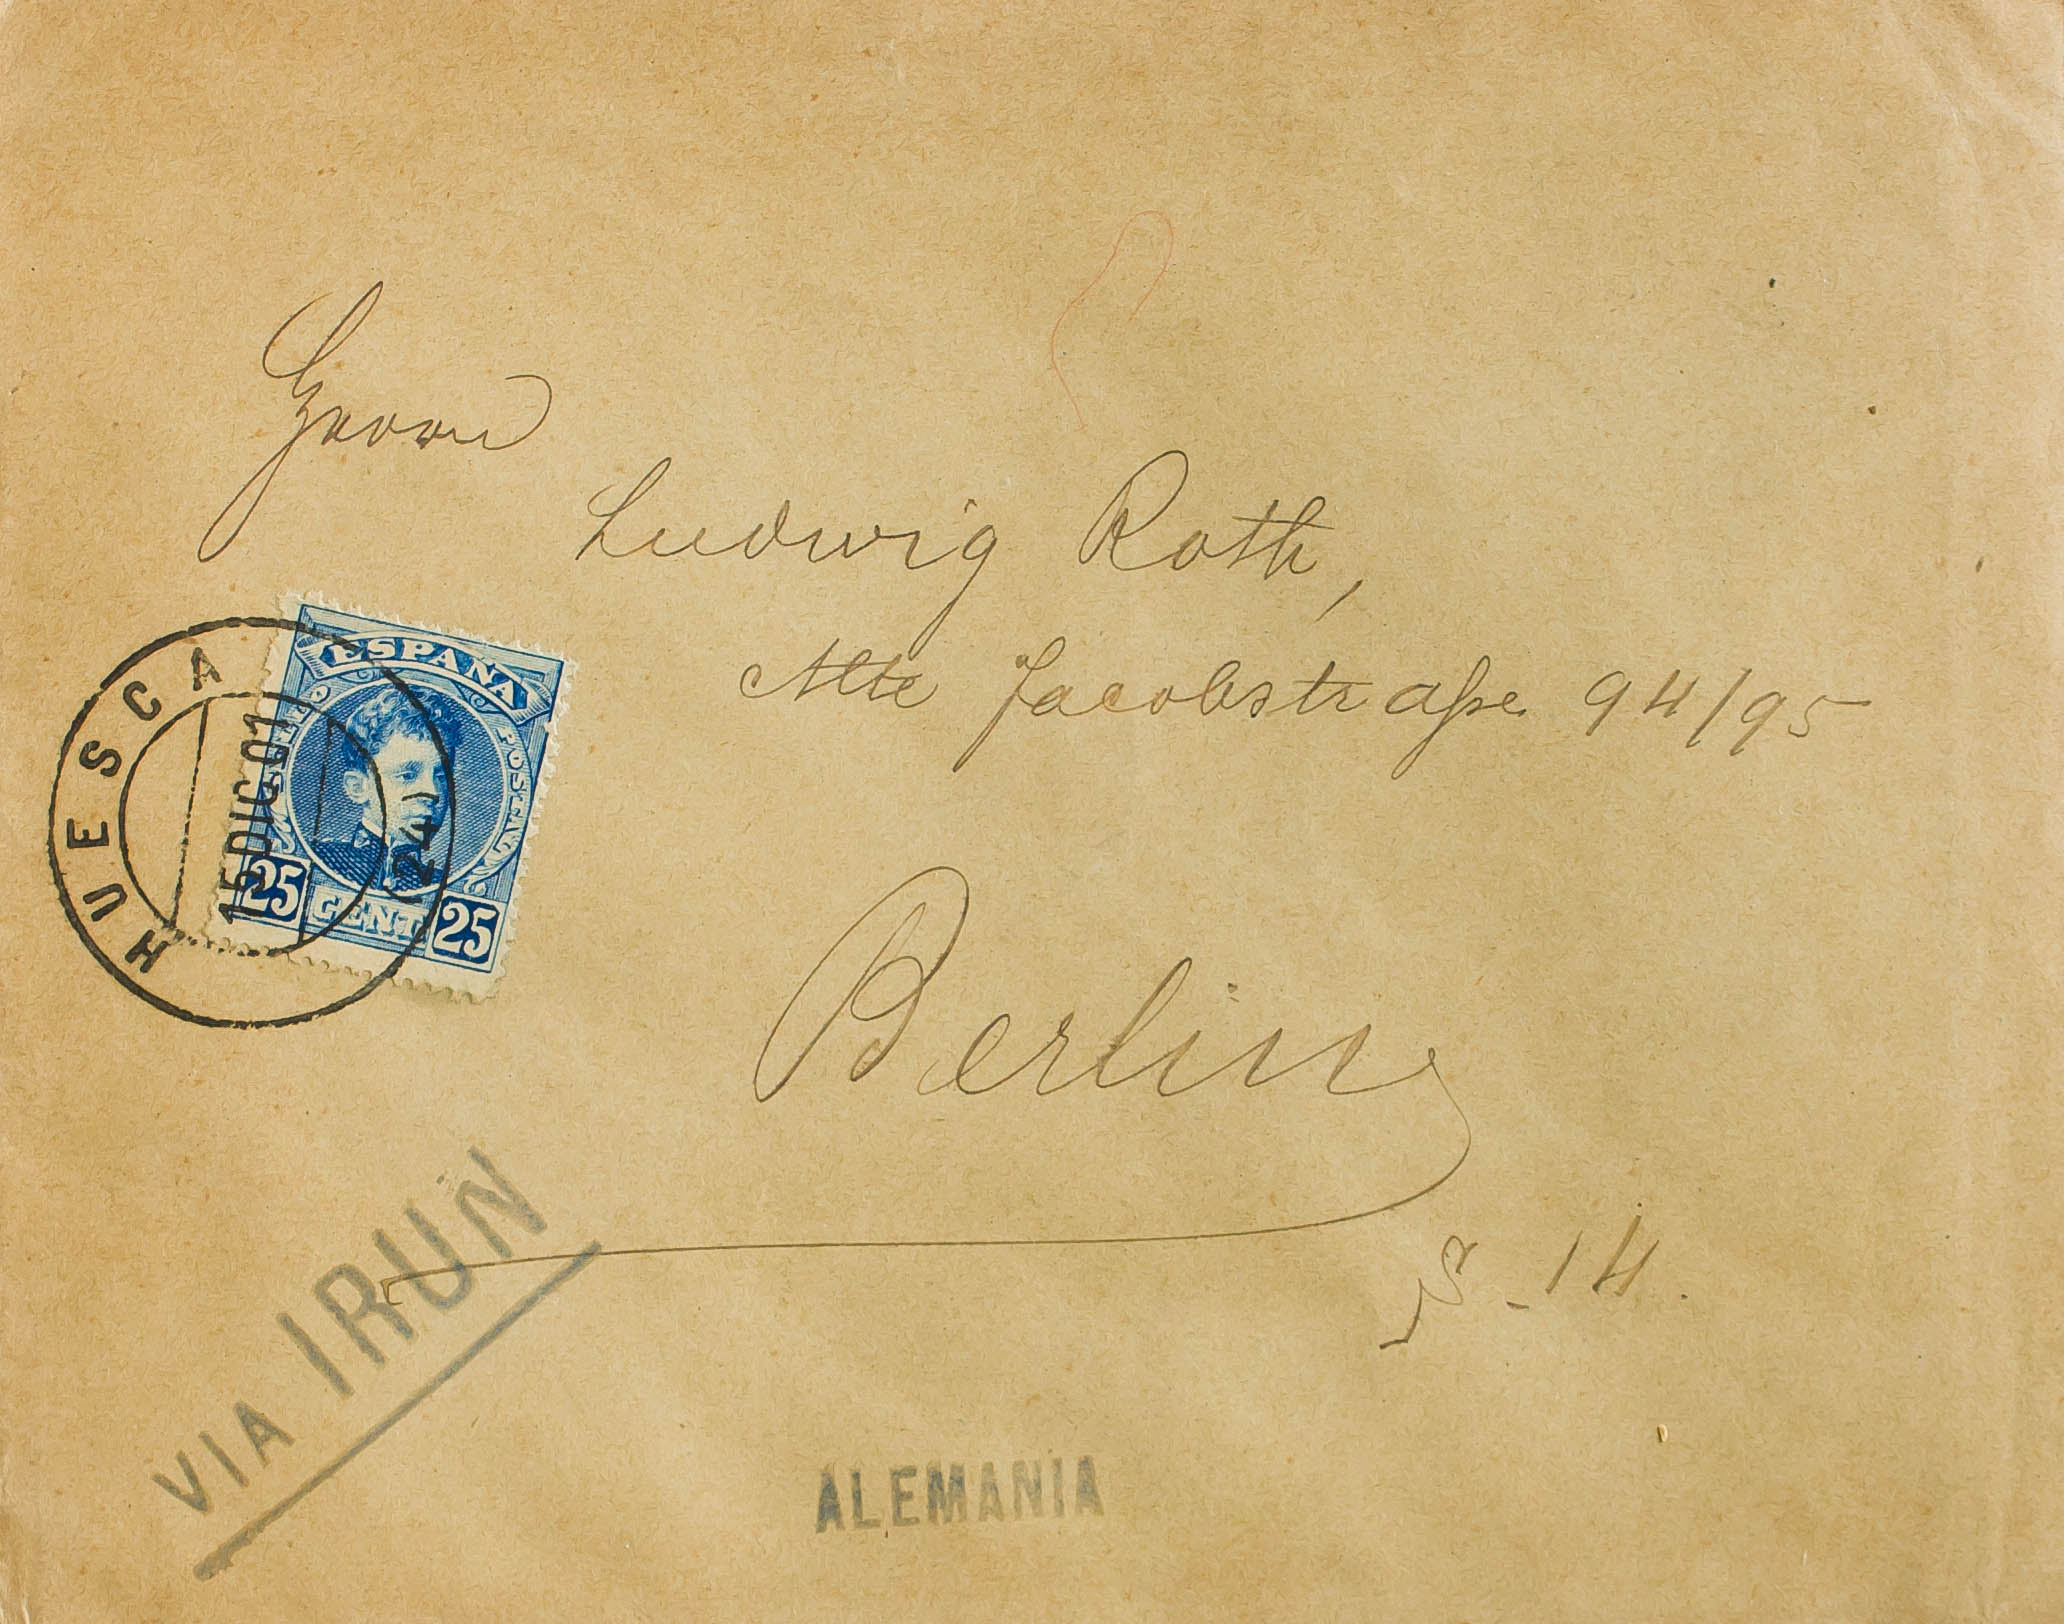 Herrn
Ludwig Roth,
Alte Jacobstraße 94/95
Berlin
S-14.
ESPAÑA
25 CENT. 25
HUESCA
15DIC01
(24)
VIA IRUN
ALEMANIA